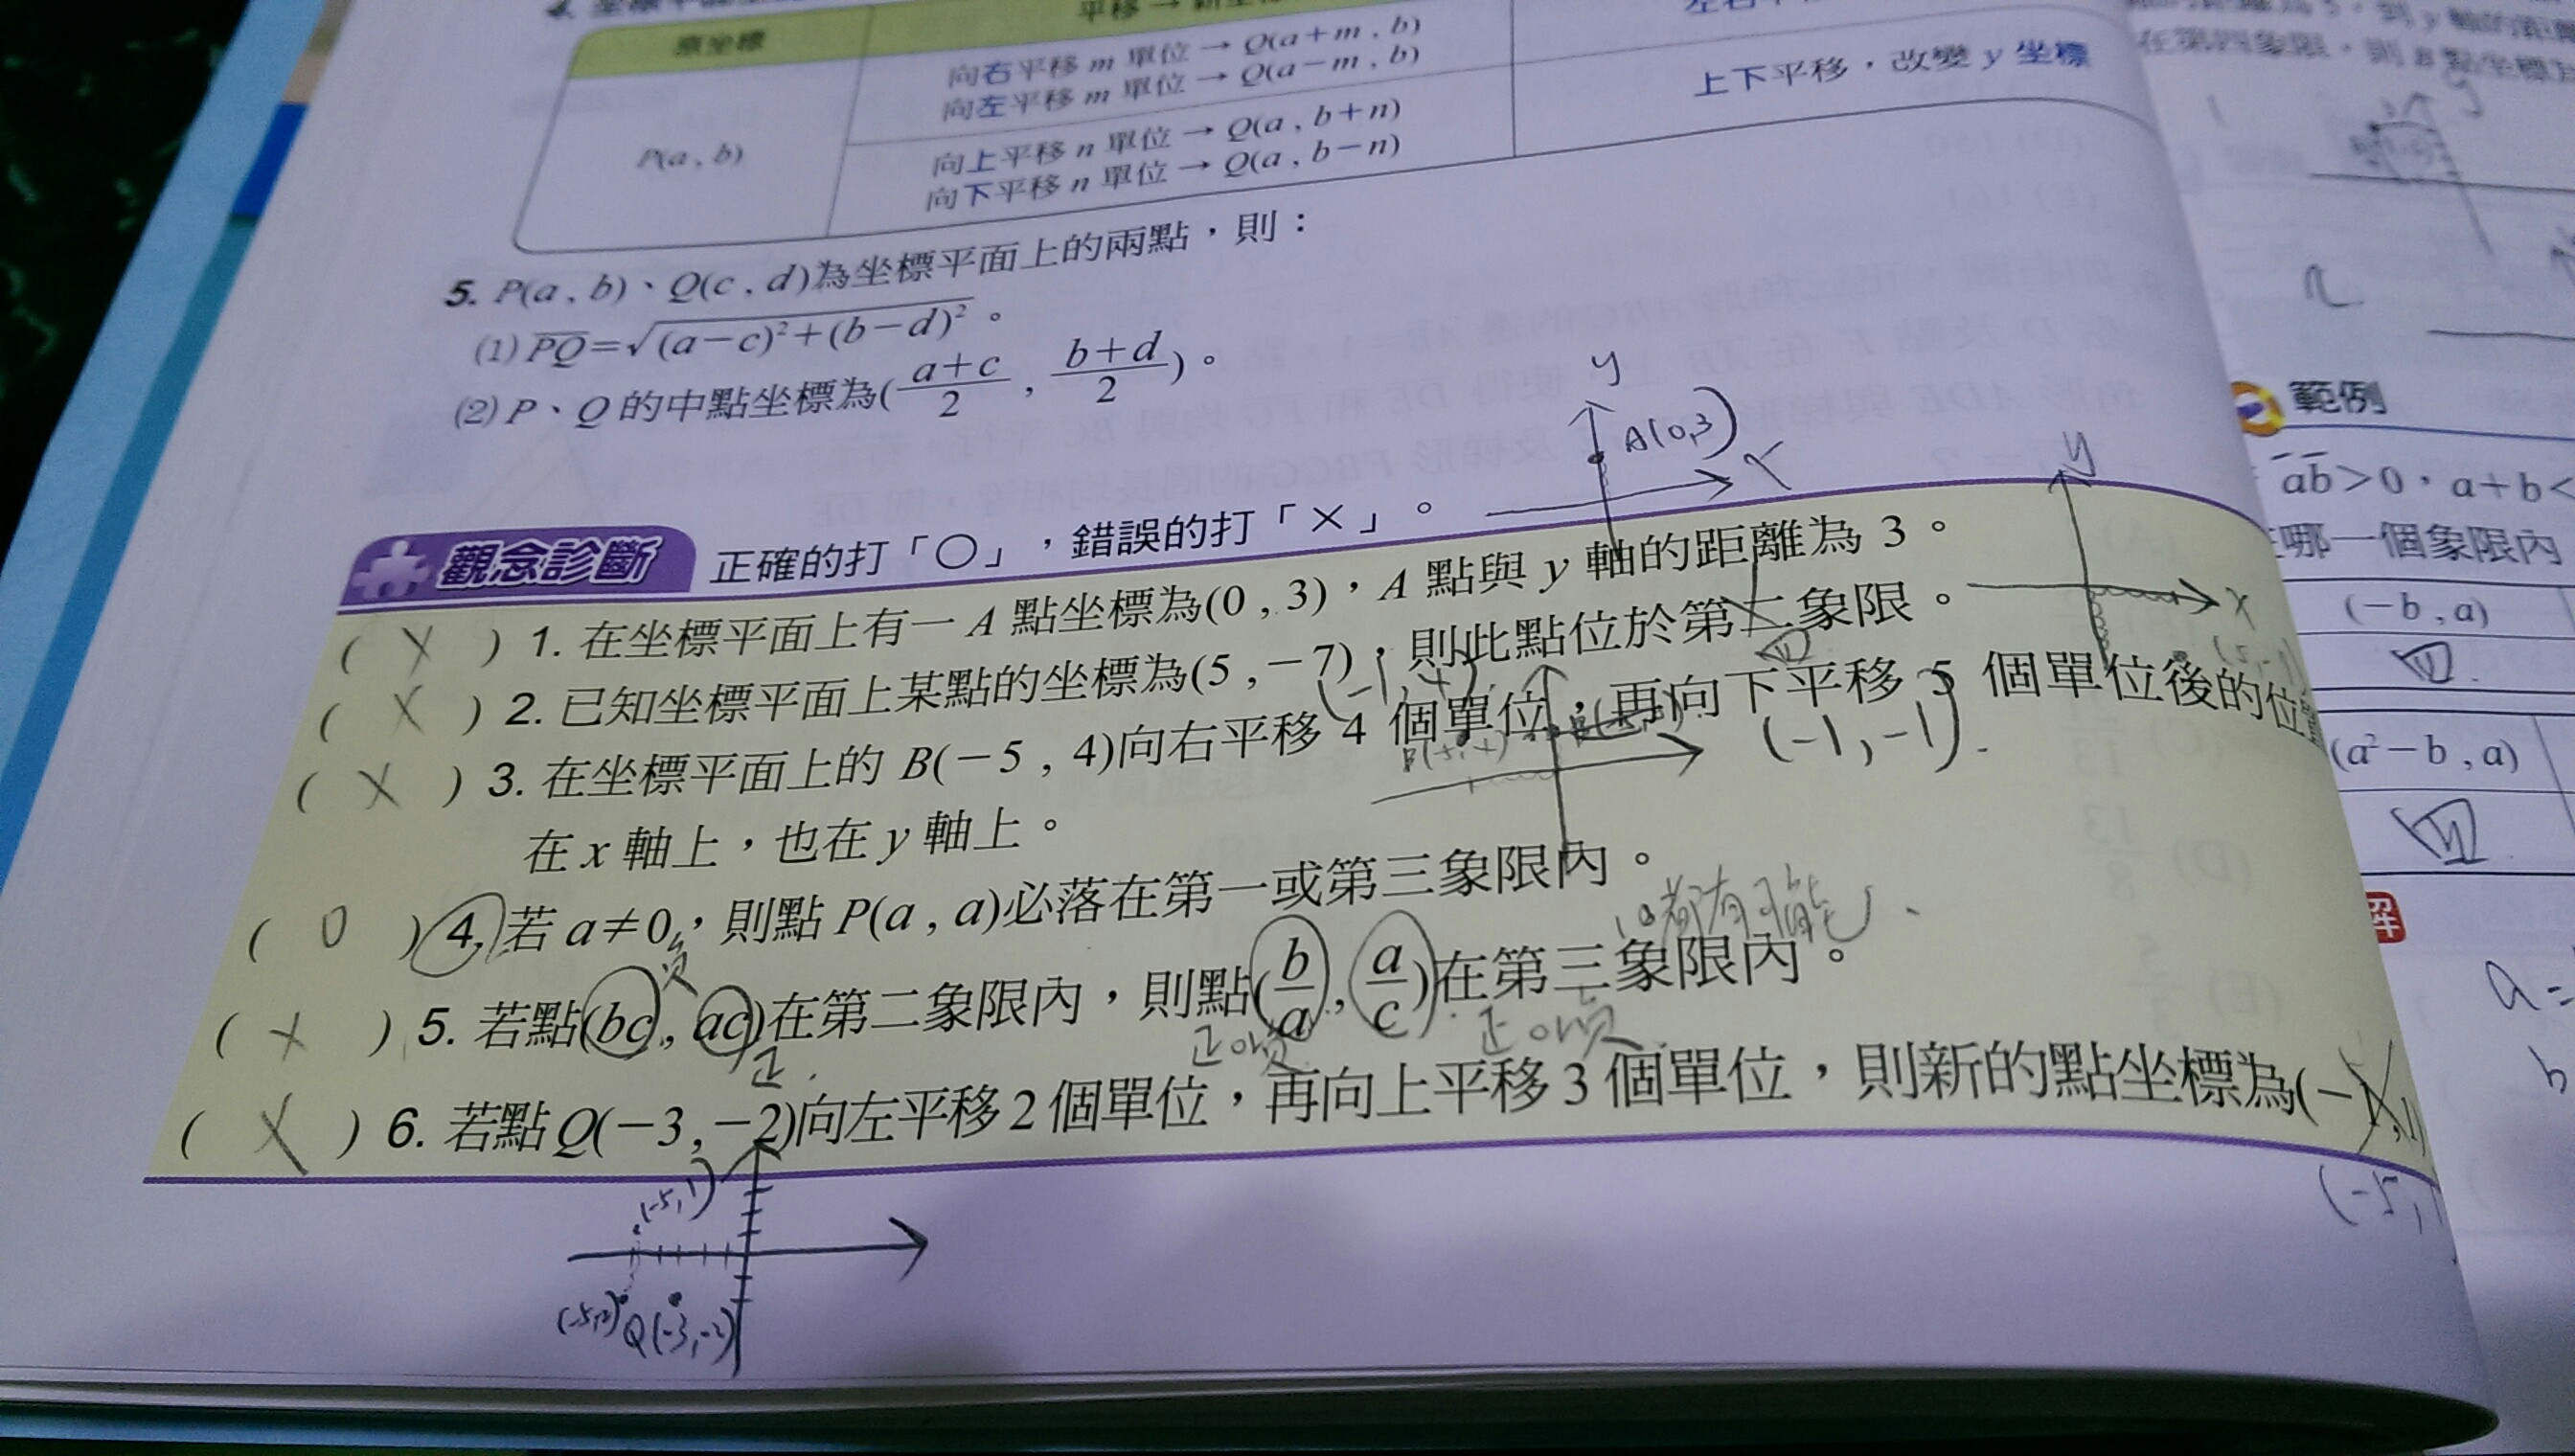 原坐標
平移→新坐
向右平移 m 單位 → Q(a+m , b)
向左平移 m 單位 → Q(a−m , b)
P(a , b)
向上平移 n 單位 → Q(a , b+n)
向下平移 n 單位 → Q(a , b−n)
上下平移，改變 y 坐標
5. P(a , b)、Q(c , d)為坐標平面上的兩點，則：
(1) PQ=√(a−c)²+(b−d)²。
(2) P、Q 的中點坐標為(a+c/2 , b+d/2)。
y
A(0,3)
x
觀念診斷 正確的打「○」，錯誤的打「×」。
( X ) 1. 在坐標平面上有一 A 點坐標為(0 , 3)，A 點與 y 軸的距離為 3。
( X ) 2. 已知坐標平面上某點的坐標為(5 , −7)，則此點位於第二象限。
四
y
x
(-1,4)
( X ) 3. 在坐標平面上的 B(−5 , 4)向右平移 4 個單位，再向下平移 5 個單位後的位
(-1,-1).
在 x 軸上，也在 y 軸上。
( O ) 4. 若 a≠0，則點 P(a , a)必落在第一或第三象限內。
負
都有可能
( X ) 5. 若點(bc , ac)在第二象限內，則點(b/a , a/c)在第三象限內。
正
正or負
正or負
( X ) 6. 若點 Q(−3 , −2)向左平移 2 個單位，再向上平移 3 個單位，則新的點坐標為(−1,1)
(-5,1
(-5,1)
Q(-3,-2)
在第四象限，則 B 點坐標為
範例
ab>0，a+b<
哪一個象限內
(−b , a)
四
(a²−b , a)
四
解
a=
b